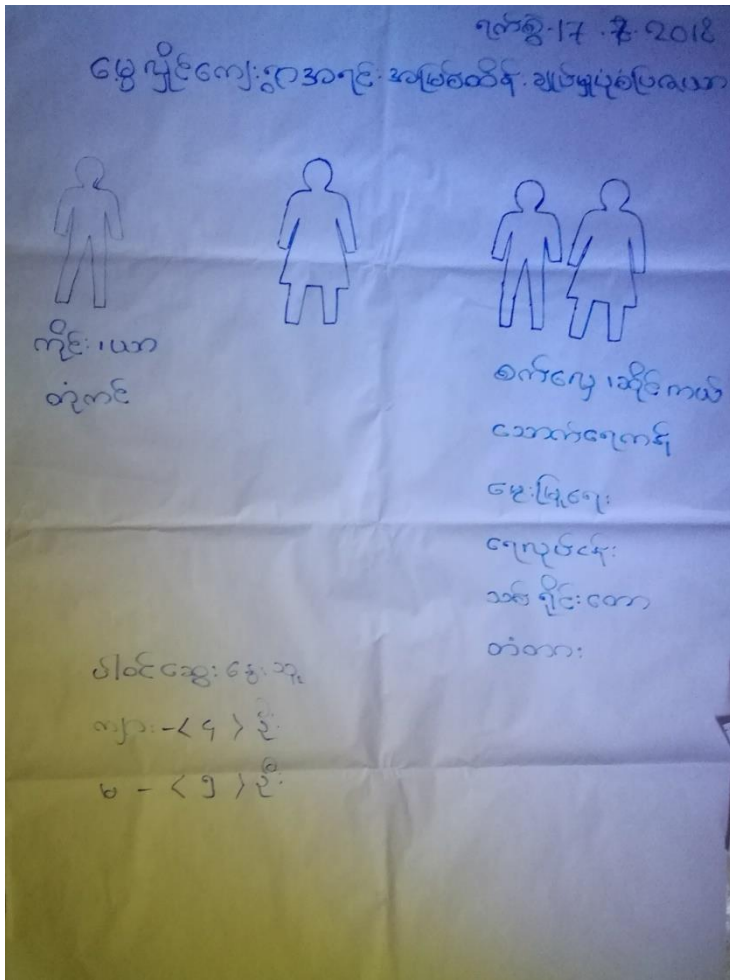 ရက်စွဲ-17.7.2018
မွေလှိုင်ကျေးရွာအရင်းအမြစ်ထိန်းချုပ်မှုပုံစံပြဇယား
ကိုင်း၊ယာ
တုံကင်
စက်လှေ၊ဆိုင်ကယ်
သောက်ရေကန်
မွေးမြူရေး
ရေလုပ်ငန်း
သစ်ရိုင်းတော
တံတား
ပါဝင်ဆွေးနွေးသူ
ကျား-<၄>ဦး
မ-<၅>ဦး